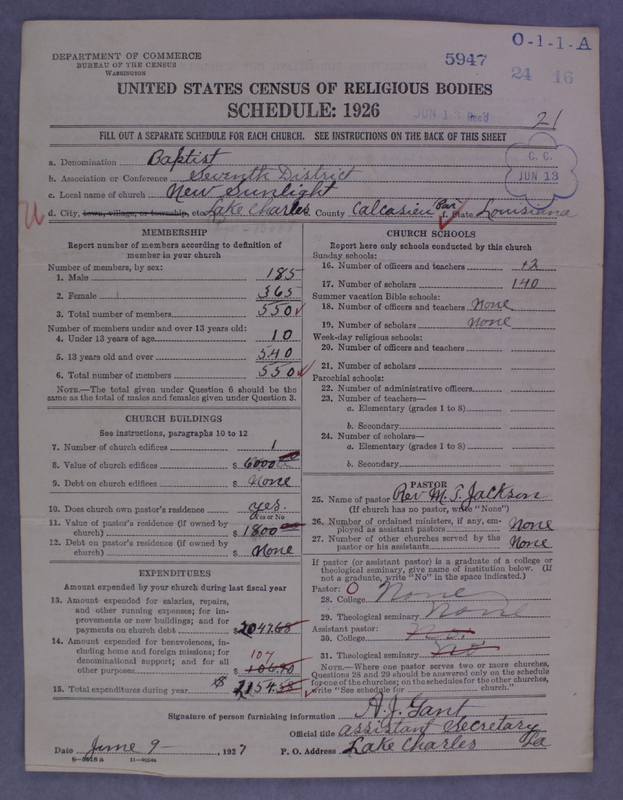 O-1-1-A
5947
24 16
DEPARTMENT OF COMMERCE
BUREAU OF THE CENSUS
WASHINGTON
UNITED STATES CENSUS OF RELIGIOUS BODIES
SCHEDULE: 1926
JUN 13 Rec'd
21
FILL OUT A SEPARATE SCHEDULE FOR EACH CHURCH. SEE INSTRUCTIONS ON THE BACK OF THIS SHEET
C. C.
JUN 13
a. Denomination Baptist
b. Association or Conference Seventh District
c. Local name of church New Sunlight
d. City, town, village, or township, etc. Lake Charles County Calcasieu (Par) f. State Louisiana
MEMBERSHIP
Report number of members according to definition of
member in your church
Number of members, by sex:
1. Male 185
2. Female 365
3. Total number of members 550
Number of members under and over 13 years old:
4. Under 13 years of age 10
5. 13 years old and over 540
6. Total number of members 550
NOTE.—The total given under Question 6 should be the
same as the total of males and females given under Question 3.
CHURCH BUILDINGS
See instructions, paragraphs 10 to 12
7. Number of church edifices 1
8. Value of church edifices $ 6000
9. Debt on church edifices $ None
10. Does church own pastor's residence yes.
Yes or No
11. Value of pastor's residence (if owned by
church) $ 1800
12. Debt on pastor's residence (if owned by
church) $ None
EXPENDITURES
Amount expended by your church during last fiscal year
13. Amount expended for salaries, repairs,
and other running expenses; for im-
provements or new buildings; and for
payments on church debt $ 2047.68
14. Amount expended for benevolences, in-
cluding home and foreign missions; for
denominational support; and for all
107
other purposes $ 106.90
15. Total expenditures during year $ 2154.58
CHURCH SCHOOLS
Report here only schools conducted by this church
Sunday schools:
16. Number of officers and teachers 12
17. Number of scholars 140
Summer vacation Bible schools:
18. Number of officers and teachers None
19. Number of scholars None
Week-day religious schools:
20. Number of officers and teachers
21. Number of scholars
Parochial schools:
22. Number of administrative officers
23. Number of teachers—
a. Elementary (grades 1 to 8)
b. Secondary
24. Number of scholars—
a. Elementary (grades 1 to 8)
b. Secondary
PASTOR
25. Name of pastor Rev M. T. Jackson
(If church has no pastor, write "None")
26. Number of ordained ministers, if any, em-
ployed as assistant pastors None
27. Number of other churches served by the
pastor or his assistants None
If pastor (or assistant pastor) is a graduate of a college or
theological seminary, give name of institution below. (If
not a graduate, write "No" in the space indicated.)
Pastor: O
28. College None
29. Theological seminary None
Assistant pastor:
30. College No
31. Theological seminary No
NOTE.—Where one pastor serves two or more churches,
Questions 28 and 29 should be answered only on the schedule
for one of the churches; on the schedules for the other churches,
write "See schedule for church."
Signature of person furnishing information A. J. Gant
Official title assistant Secretary
Date June 9 - 1927 P. O. Address Lake Charles La